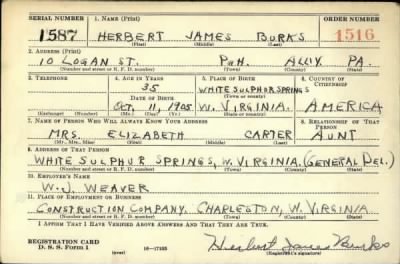 SERIAL NUMBER 1. NAME (Print) ORDER NUMBER
1587 HERBERT JAMES BURKS 1516
(First) (Middle) (Last)
2. ADDRESS (Print)
10 LOGAN ST. PGH. ALLY. PA.
(Number and street or R. F. D. number) (Town) (County) (State)
3. TELEPHONE 4. AGE IN YEARS 5. PLACE OF BIRTH 6. COUNTRY OF CITIZENSHIP
35 WHITE SULPHUR SPRINGS
DATE OF BIRTH (Town or county)
OCT. 11, 1905 W. VIRGINIA. AMERICA
(Exchange) (Number) (Mo.) (Day) (Yr.) (State or country)
7. NAME OF PERSON WHO WILL ALWAYS KNOW YOUR ADDRESS 8. RELATIONSHIP OF THAT PERSON
MRS. ELIZABETH CARTER AUNT
(Mr., Mrs., Miss) (First) (Middle) (Last)
9. ADDRESS OF THAT PERSON
WHITE SULPHUR SPRINGS, W. VIRGINIA. (GENERAL DEL.)
(Number and street or R. F. D. number) (Town) (County) (State)
10. EMPLOYER'S NAME
W. J. WEAVER
11. PLACE OF EMPLOYMENT OR BUSINESS
CONSTRUCTION COMPANY, CHARLESTON, W. VIRGINIA
(Number and street or R. F. D. number) (Town) (County) (State)
I AFFIRM THAT I HAVE VERIFIED ABOVE ANSWERS AND THAT THEY ARE TRUE.
REGISTRATION CARD
D. S. S. Form 1 (over) 16—17105 Herbert James Burks
(Registrant's signature)